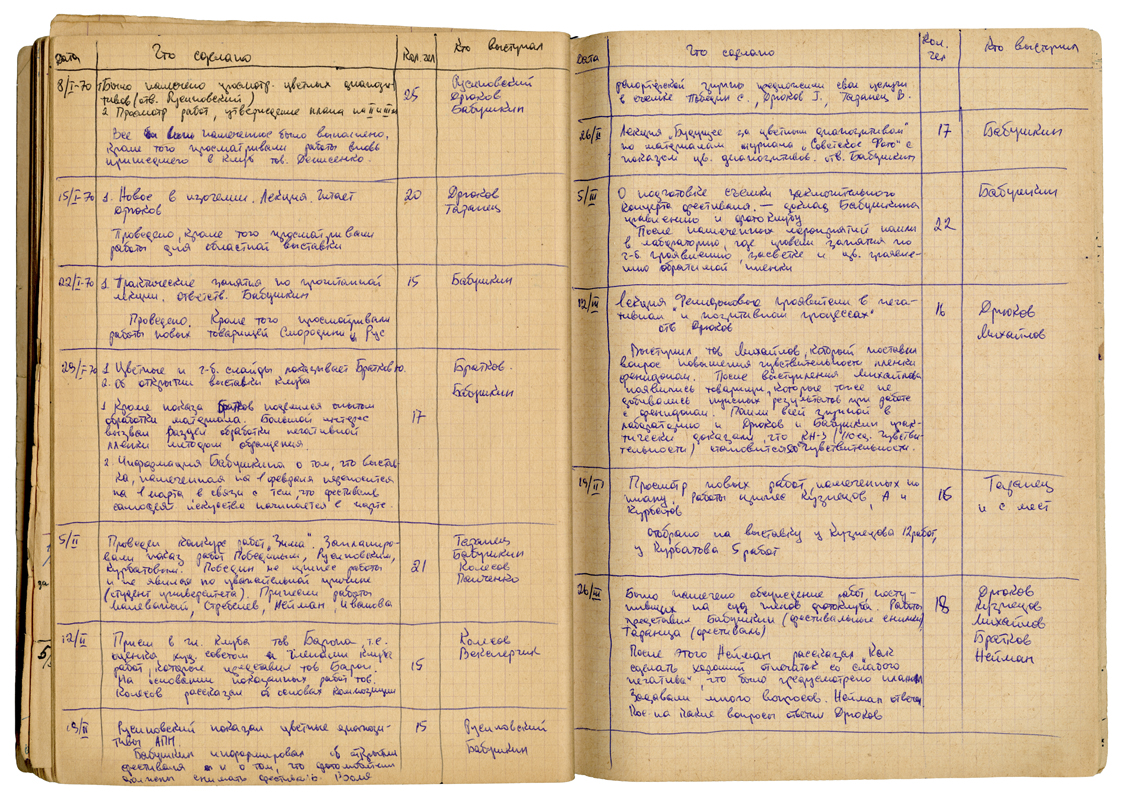 Дата Что сделано Кол. чел Кто выступал
8/I-70 1. Было намечено просмотр. цветных диапози-
тивов (отв. Русиновский) 25 Русиновский
2. Просмотр работ, утверждение плана на II и III м Дрюков
Бабушкин
Все намеченное было выполнено,
кроме того просматривали работы вновь
пришедшего в клуб тов. Денисенко.
15/I-70 1. Новое в изогелии. Лекция. Читает 20 Дрюков
Дрюков Таранец
Проведено, кроме того просматривали
работы для областной выставки
22/I-70 1. Практические занятия по прочитанной 15 Бабушкин
лекции. Ответств. Бабушкин
Проведено. Кроме того просматривали
работы новых товарищей Смородины, Рус
29/I-70 1 Цветные и г-б. слайды показывает Братков. Братков.
2. Об открытии выставки клуба Бабушкин
1 Кроме показа Братков поделился опытом
обработки материала. Большой интерес 17
вызвал раздел обработки негативной
пленки методом обращения
2. Информация Бабушкина о том, что выстав-
ка, намеченная на 1 февраля переносится
на 1 марта, в связи с тем что фестиваль
самодеят искусства начинается в марте.
5/II Проведен конкурс работ "Зима". Запланиро- Таранец
вали показ работ Победина, Русиновским, Бабушкин
Курбатовым. Победин не принес работы 21 Колесов
и не явился по уважительной причине Панченко
(студент университета). Принесли работы
Малеванный, Стребелев, Нейман, Иванова
12/II Прием в чл. клуба тов Барона, т.е. Колесов
оценка худ советом и членами клуба Векслерчик
работ, которые представил тов Барон. 15
На основании показанных работ тов.
Колесов рассказал о основах композиции
19/II Русиновский показал цветные диапози- 15 Русиновский
тивы АПН.
Бабушкин информировал об открытии Бабушкин
фестиваля и о том, что фотолюбители
должны снимать фестиваль. Возле
Дата Что сделано Кол. чел Кто выступал
репортёрской группы предложили свои услуги
в съемке Победин С., Дрюков Г., Таранец В.
26/II Лекция "Будущее за цветным диапозитивом" 17 Бабушкин
по материалам журнала "Советское Фото" с
показом цв. диапозитивов. отв. Бабушкин
5/III О подготовке съемки заключительного Бабушкин
концерта фестиваля, — доклад Бабушкина
правлению и фотоклубу 22
После намеченных мероприятий пошли
в лабораторию, где провели занятия по
г-б. проявлению, засветке и цв. проявле-
нию обратимой пленки
12/III Лекция "Фенидоновые проявители в нега- 16 Дрюков
тивном и позитивном процессах" Михайлов
отв Дрюков
Выступил тов Михайлов, который поставил
вопрос повышения чувствительности пленки
фенидоном. После выступления Михайлова
появились товарищи, которые тоже не
добивались нужных результатов при работе
с фенидоном. Пошли всей группой в
лабораторию и Дрюков и Бабушкин прак-
тически доказали, что КН-3 чувстви-
тельности) становится чувствительности.
19/III Просмотр новых работ, намеченных по 16 Таранец
плану. Работы принес Кузнецов, А и и с мест
Курбатов
отобрано на выставку у Кузнецова 12 работ
у Курбатова 5 работ
26/III Было намечено обсуждение работ посту- 18 Дрюков
пивших на суд членов фотоклуба. Работы Кузнецов
представил Бабушкин (фестивальные снимки) Михайлов
Таранца (фестиваль) Братков
После этого Нейман рассказал "Как Нейман
сделать хороший отпечаток со слабого
негатива", что было предусмотрено планом
Задавали много вопросов. Нейман ответил
на такие вопросы ответил Дрюков